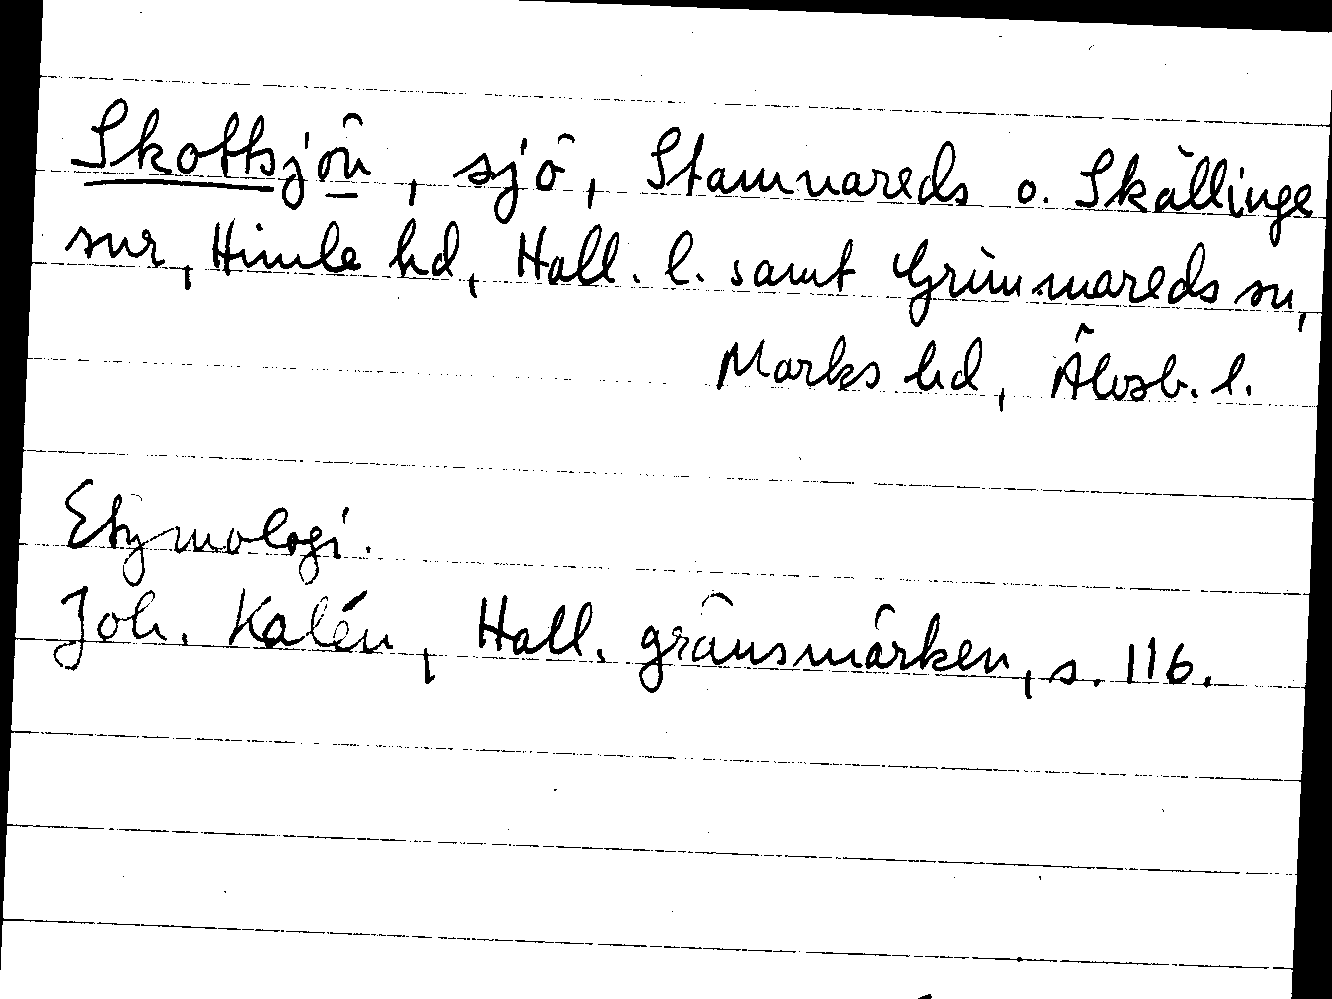 Skottsjön, sjö, Stamnareds o. Skällinge
snr, Himle hd, Hall. l. samt Grimmareds sn,
Marks hd, Älvsb. l.
Etymologi.
Joh. Kalén, Hall. gränsmärken, s. 116.